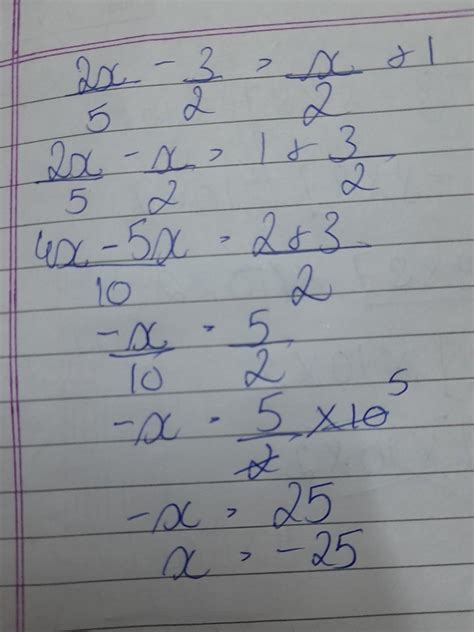 2x/5 - 3/2 = x/2 + 1
2x/5 - x/2 = 1 + 3/2
4x - 5x/10 = 2 + 3/2
-x/10 = 5/2
-x = 5/2 × 10 5
-x = 25
x = -25